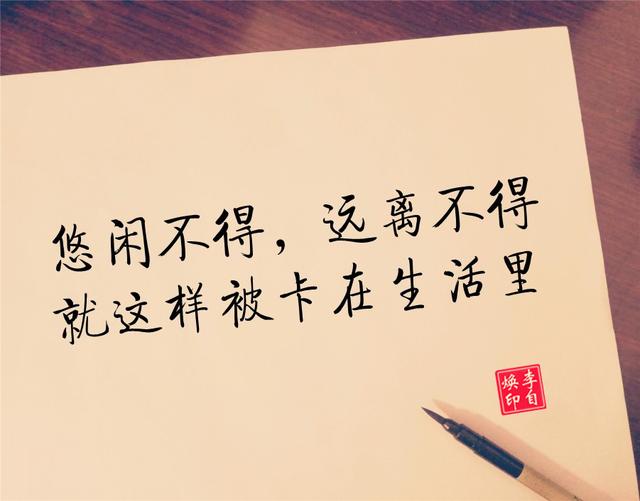 悠闲不得，远离不得
就这样被卡在生活里
李自焕印